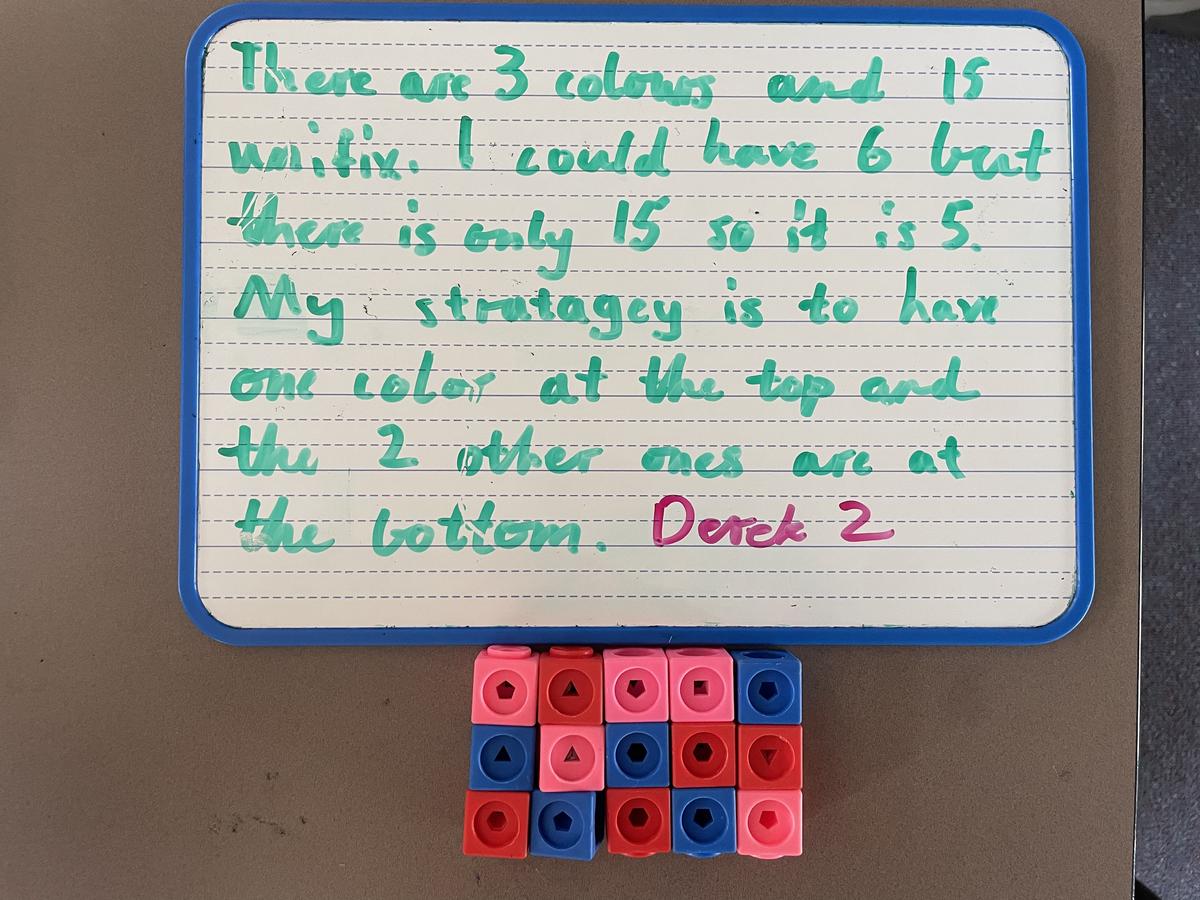 There are 3 colours and 15
unifix. I could have 6 but
there is only 15 so it is 5.
My stratagey is to have
one color at the top and
the 2 other ones are at
the bottom. Derek 2